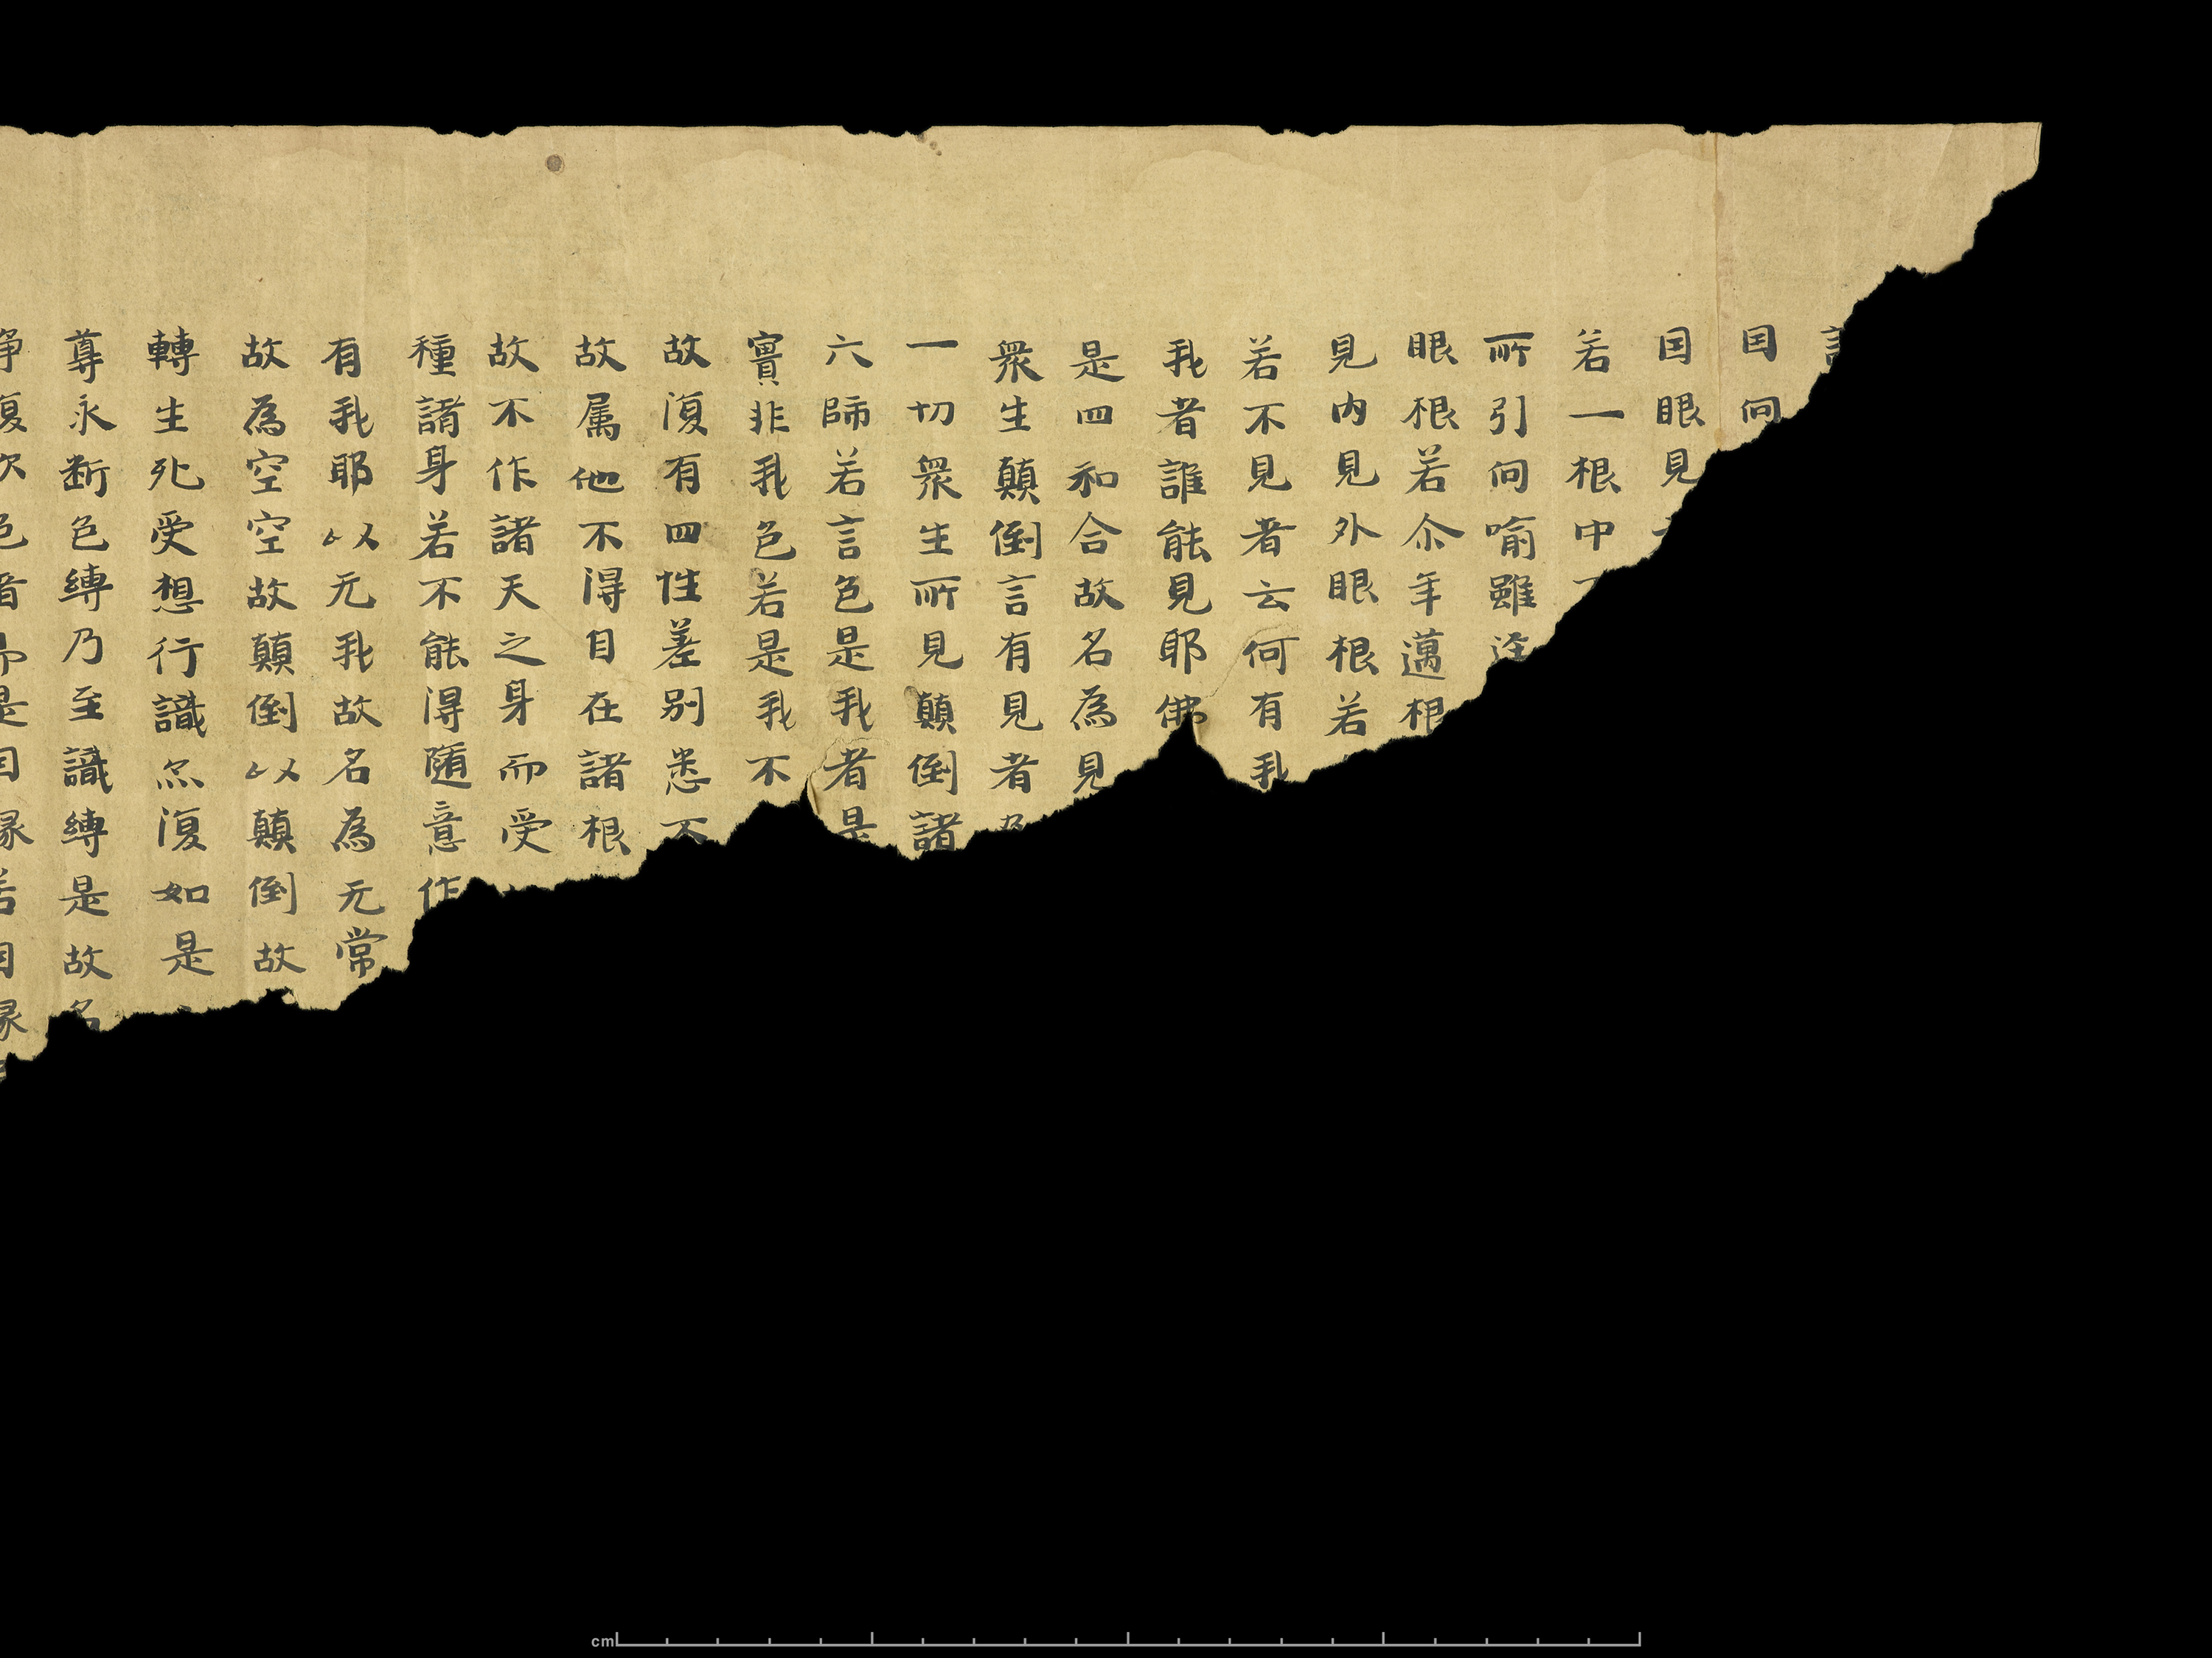 囙向
囙眼見
若一根中
所引向喻雖迳
眼根若尒年邁根
見内見外眼根若
若不見者云何有我
我者誰能見耶佛
是四和合故名為見
衆生顛倒言有見者及
一切衆生所見顛倒諸
六師若言色是我者是
實非我色若是我不
故復有四性差别悉不
故属他不得自在諸根
故不作諸天之身而受
種諸身若不能得随意作
有我耶以无我故名為无常
故為空空故顛倒以顛倒故
轉生死受想行識亦復如是
尊永断色縛乃至識縛是故名
復次色者即是因縁若因縁